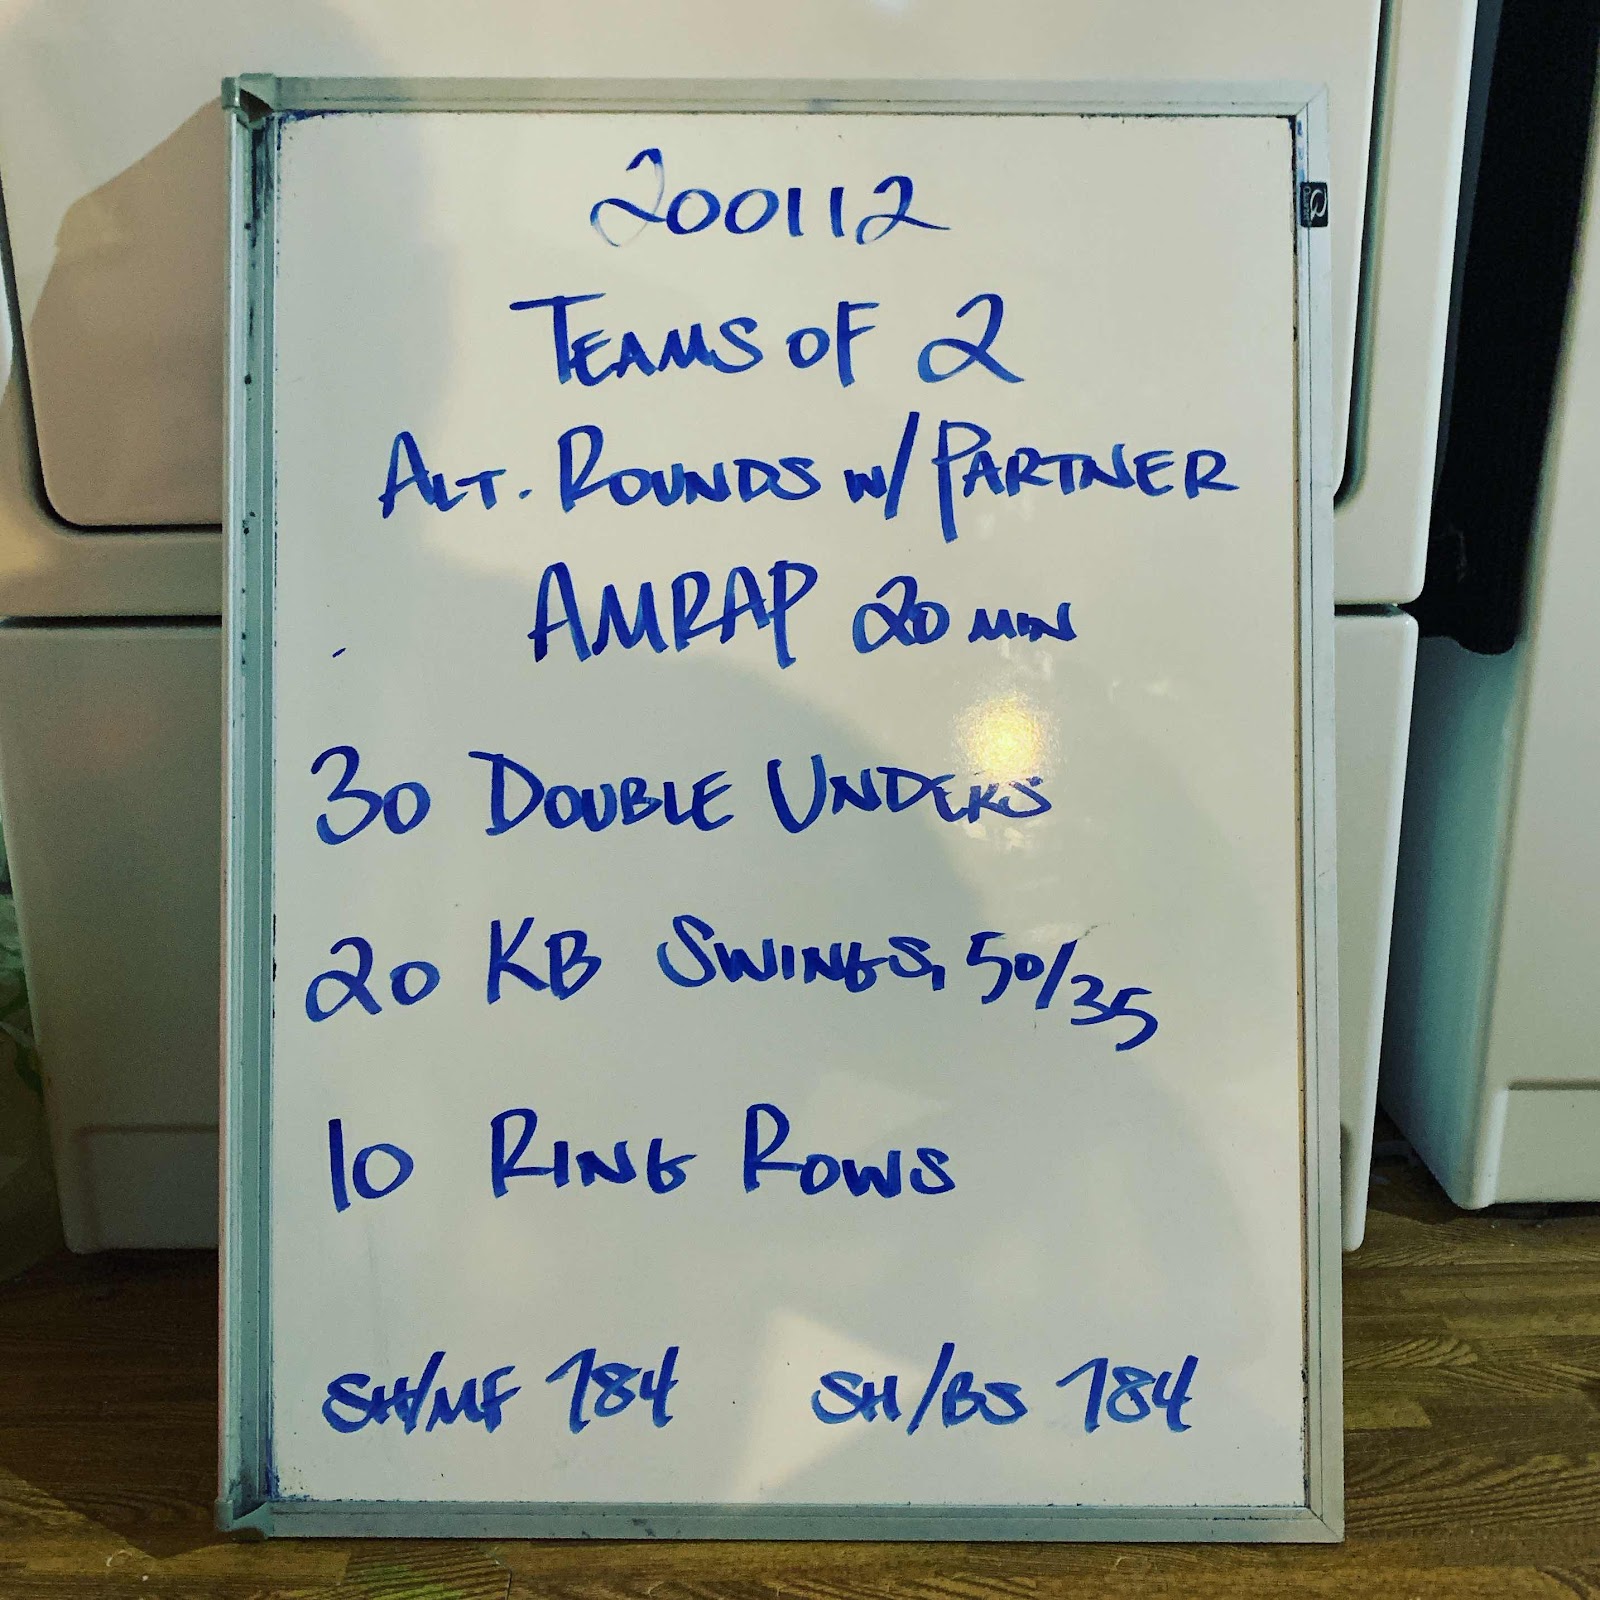 200112
TEAMS OF 2
ALT. ROUNDS W/ PARTNER
AMRAP 20 MIN
30 DOUBLE UNDERS
20 KB SWINGS, 50/35
10 RING ROWS
SH/MF 784 SH/BS 784